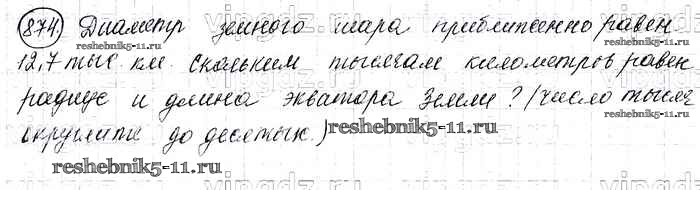 874. Диаметр земного шара приближенно равен
reshebnik5-11.ru
reshebnik5-11.ru
12,7 тыс. км. Скольким тысячам километров равен
радиус и длина экватора Земли? (Число тысяч
округлите до десятых.)
reshebnik5-11.ru
reshebnik5-11.ru
vingdz.ru